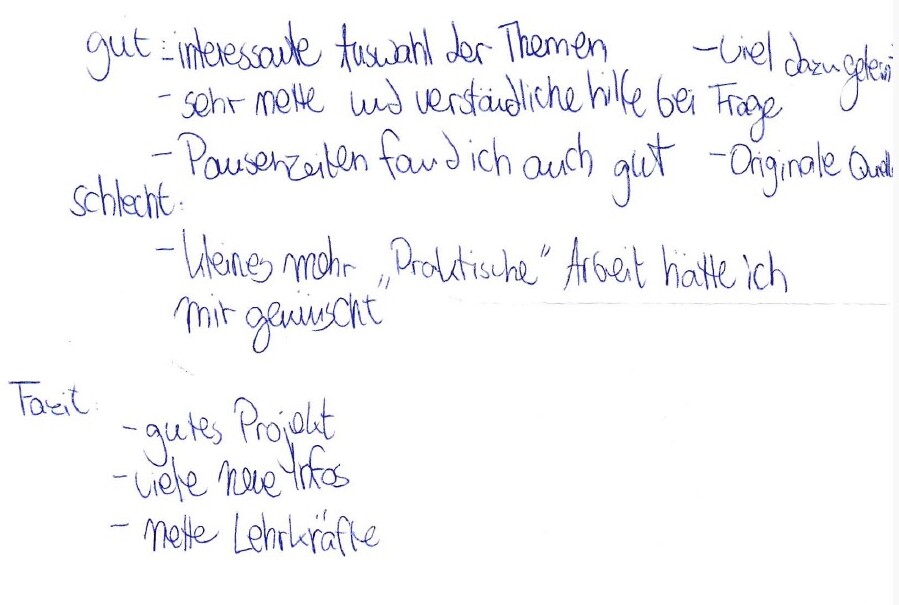 gut: - interessante Auswahl der Themen - viel dazu
- sehr nette und verständliche hilfe bei Frage
- Pausenzeiten fand ich auch gut - Originale
schlecht:
- kleines mehr „Praktische“ Arbeit hätte ich
mir gewünscht
Fazit:
- gutes Projekt
- viele neue Infos
- nette Lehrkräfte